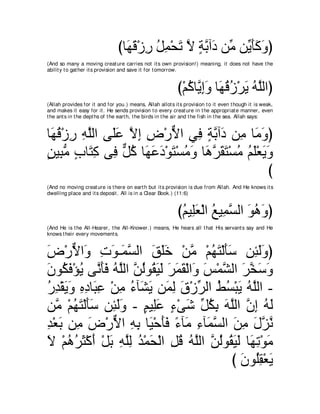 (وَكَأَيِّن مِّن دَآبَّةٍ لاَّ تَحْمِلُ رِزْقَهَا)
(And so many a moving creature carries not its own provision!) meaning, it does not have the
ability to gather its provision and save it for tomorrow.
(اللَّهُ يَرْزُقُهَا وَإِيَّاكُمْ)
(Allah provides for it and for you.) means, Allah allots its provision to it even though it is weak,
and makes it easy for it. He sends provision to every creature in the appropriate manner, even
the ants in the depths of the earth, the birds in the air and the fish in the sea. Allah says:
(وَمَا مِن دَآبَّةٍ فِي الاٌّرْضِ إِلاَّ عَلَى اللَّهِ رِزْقُهَا
وَيَعْلَمُ مُسْتَقَرَّهَا وَمُسْتَوْدَعَهَا كُلٌّ فِى كِتَابٍ مُّبِينٍ
)
(And no moving creature is there on earth but its provision is due from Allah. And He knows its
dwelling place and its deposit. All is in a Clear Book.) (11:6)
(وَهُوَ السَّمِيعُ الْعَلِيمُ)
(And He is the All-Hearer, the All-Knower.) means, He hears all that His servants say and He
knows their every movements.
(وَلَئِن سَأَلْتَهُمْ مَّنْ خَلَقَ السَّمَـوَتِ وَالاٌّرْضَ
وَسَخَّرَ الشَّمْسَ وَالْقَمَرَ لَيَقُولُنَّ اللَّهُ فَأَنَّى يُؤْفَكُونَ
- اللَّهُ يَبْسُطُ الرِّزْقَ لِمَن يَشَآءُ مِنْ عِبَادِهِ وَيَقْدِرُ
لَهُ إِنَّ اللَّهَ بِكُلِّ شَىْءٍ عَلِيمٌ - وَلَئِن سَأَلْتَهُمْ مَّن
نَّزَّلَ مِنَ السَّمَآءِ مَآءً فَأَحْيَا بِهِ الاٌّرْضَ مِن بَعْدِ
مَوْتِهَا لَيَقُولُنَّ اللَّهُ قُلِ الْحَمْدُ لِلَّهِ بَلْ أَكْثَرُهُمْ لاَ
يَعْقِلُونَ )